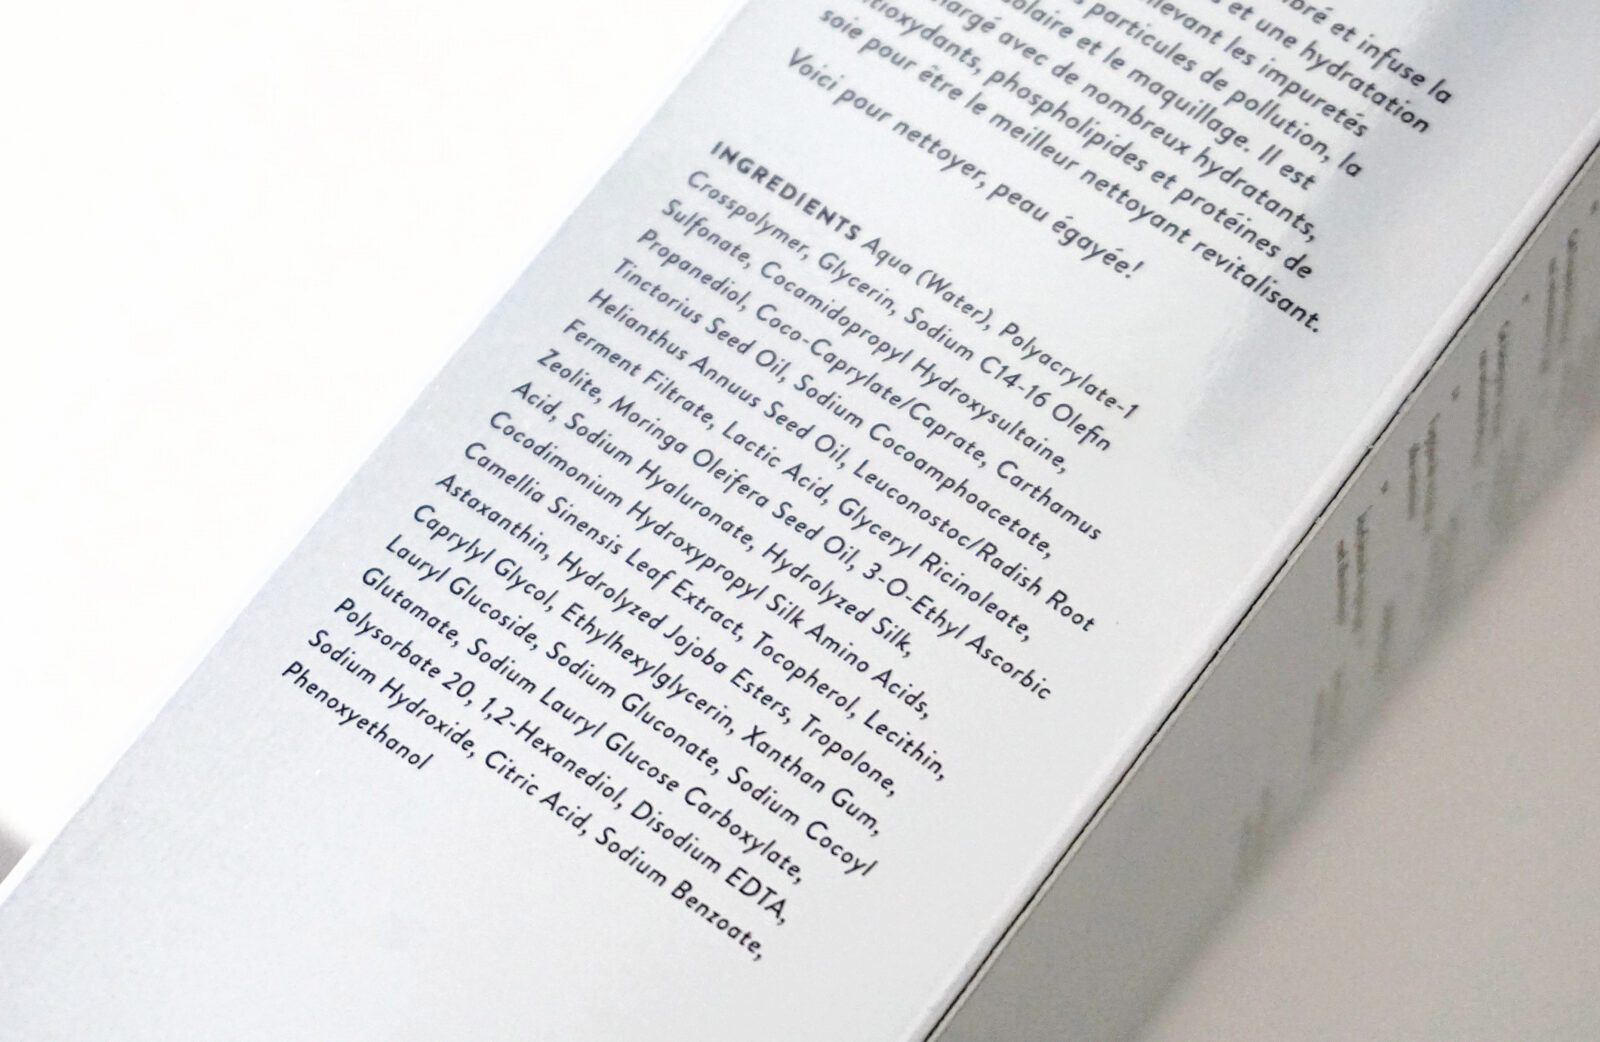 et infuse la
et une hydratation
les impuretés
particules de pollution, la
solaire et le maquillage. Il est
avec de nombreux hydratants,
phospholipides et protéines de
soie pour être le meilleur nettoyant revitalisant.
Voici pour nettoyer, peau égayée!
INGREDIENTS Aqua (Water), Polyacrylate-1
Crosspolymer, Glycerin, Sodium C14-16 Olefin
Sulfonate, Cocamidopropyl Hydroxysultaine,
Propanediol, Coco-Caprylate/Caprate, Carthamus
Tinctorius Seed Oil, Sodium Cocoamphoacetate,
Helianthus Annuus Seed Oil, Leuconostoc/Radish Root
Ferment Filtrate, Lactic Acid, Glyceryl Ricinoleate,
Zeolite, Moringa Oleifera Seed Oil, 3-O-Ethyl Ascorbic
Acid, Sodium Hyaluronate, Hydrolyzed Silk,
Cocodimonium Hydroxypropyl Silk Amino Acids,
Camellia Sinensis Leaf Extract, Tocopherol, Lecithin,
Astaxanthin, Hydrolyzed Jojoba Esters, Tropolone,
Caprylyl Glycol, Ethylhexylglycerin, Xanthan Gum,
Lauryl Glucoside, Sodium Gluconate, Sodium Cocoyl
Glutamate, Sodium Lauryl Glucose Carboxylate,
Polysorbate 20, 1,2-Hexanediol, Disodium EDTA,
Sodium Hydroxide, Citric Acid, Sodium Benzoate,
Phenoxyethanol